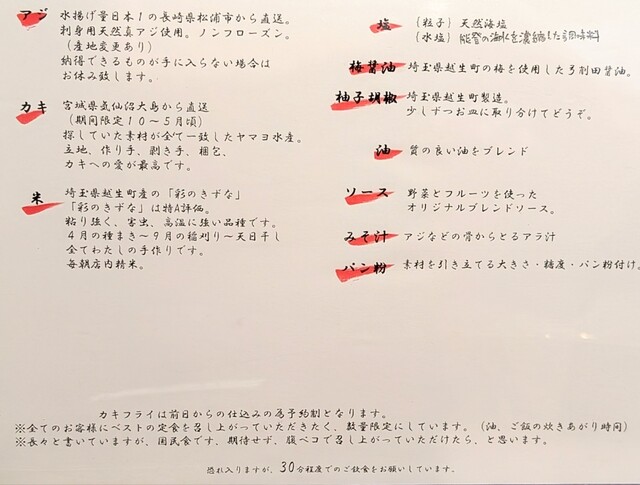 アジ 水揚げ量日本1の長崎県松浦市から直送。
刺身用天然真アジ使用。ノンフローズン。
(産地変更あり)
納得できるものが手に入らない場合は
お休み致します。
カキ 宮城県気仙沼大島から直送
(期間限定10〜5月頃)
探していた素材が全て一致したヤマヨ水産。
立地、作り手、剥き手、梱包、
カキへの愛が最高です。
米 埼玉県越生町産の「彩のきずな」
「彩のきずな」は特A評価。
粘り強く、害虫、高温に強い品種です。
4月の種まき〜9月の稲刈り〜天日干し
全てわたしの手作りです。
毎朝店内精米。
塩 (粒子) 天然海塩
(水塩) 能登の海水を濃縮した万能調味料
梅醤油 埼玉県越生町の梅を使用した弓削田醤油。
柚子胡椒 埼玉県越生町製造。
少しずつお皿に取り分けてどうぞ。
油 質の良い油をブレンド
ソース 野菜とフルーツを使った
オリジナルブレンドソース。
みそ汁 アジなどの骨からとるアラ汁
パン粉 素材を引き立てる大きさ・糖度・パン粉付け。
カキフライは前日からの仕込みの為予約制となります。
※全てのお客様にベストの定食を召し上がっていただきたく、数量限定にしています。(油、ご飯の炊きあがり時間)
※長々と書いていますが、国民食です、期待せず、腹ペコで召し上がっていただけたら、と思います。
恐れ入りますが、30分程度でのご飲食をお願いしています。